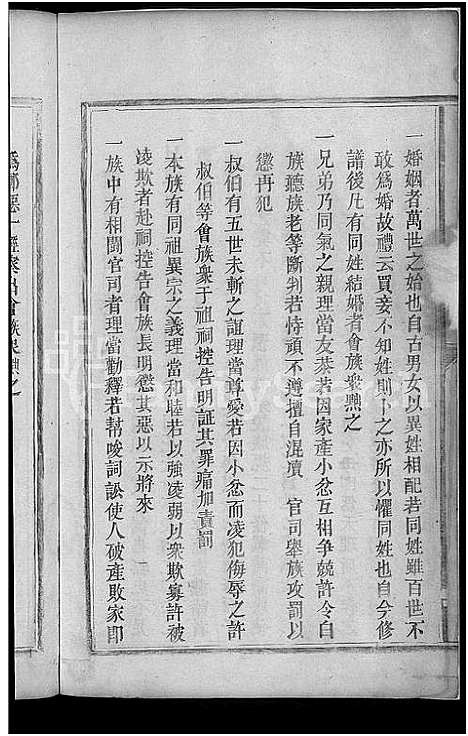 一婚姻者萬世之始也自古男女以異姓相配若同姓雖百世不
敢爲婚故禮云買妾不知姓則卜之亦所以懼同姓也自今修
譜後凡有同姓結婚者會族衆黜之
一兄弟乃同氣之親理當友恭若因家產小忿互相爭競許令白
族聽族老等斷判若恃頑不遵擅自混凟 官司舉族攻罰以
懲再犯
一叔伯有五世未斬之誼理當尊愛若因小忿而凌犯侮辱之許
叔伯等會族衆于祖祠控告明証其罪痛加責罰
一本族有同祖異宗之義理當和睦若以強凌弱以衆欺寡許被
凌欺者赴祠控告會族長明懲其惡以示將來
一族中有相鬪官司者理當勸釋若幫唆詞訟使人破產敗家即